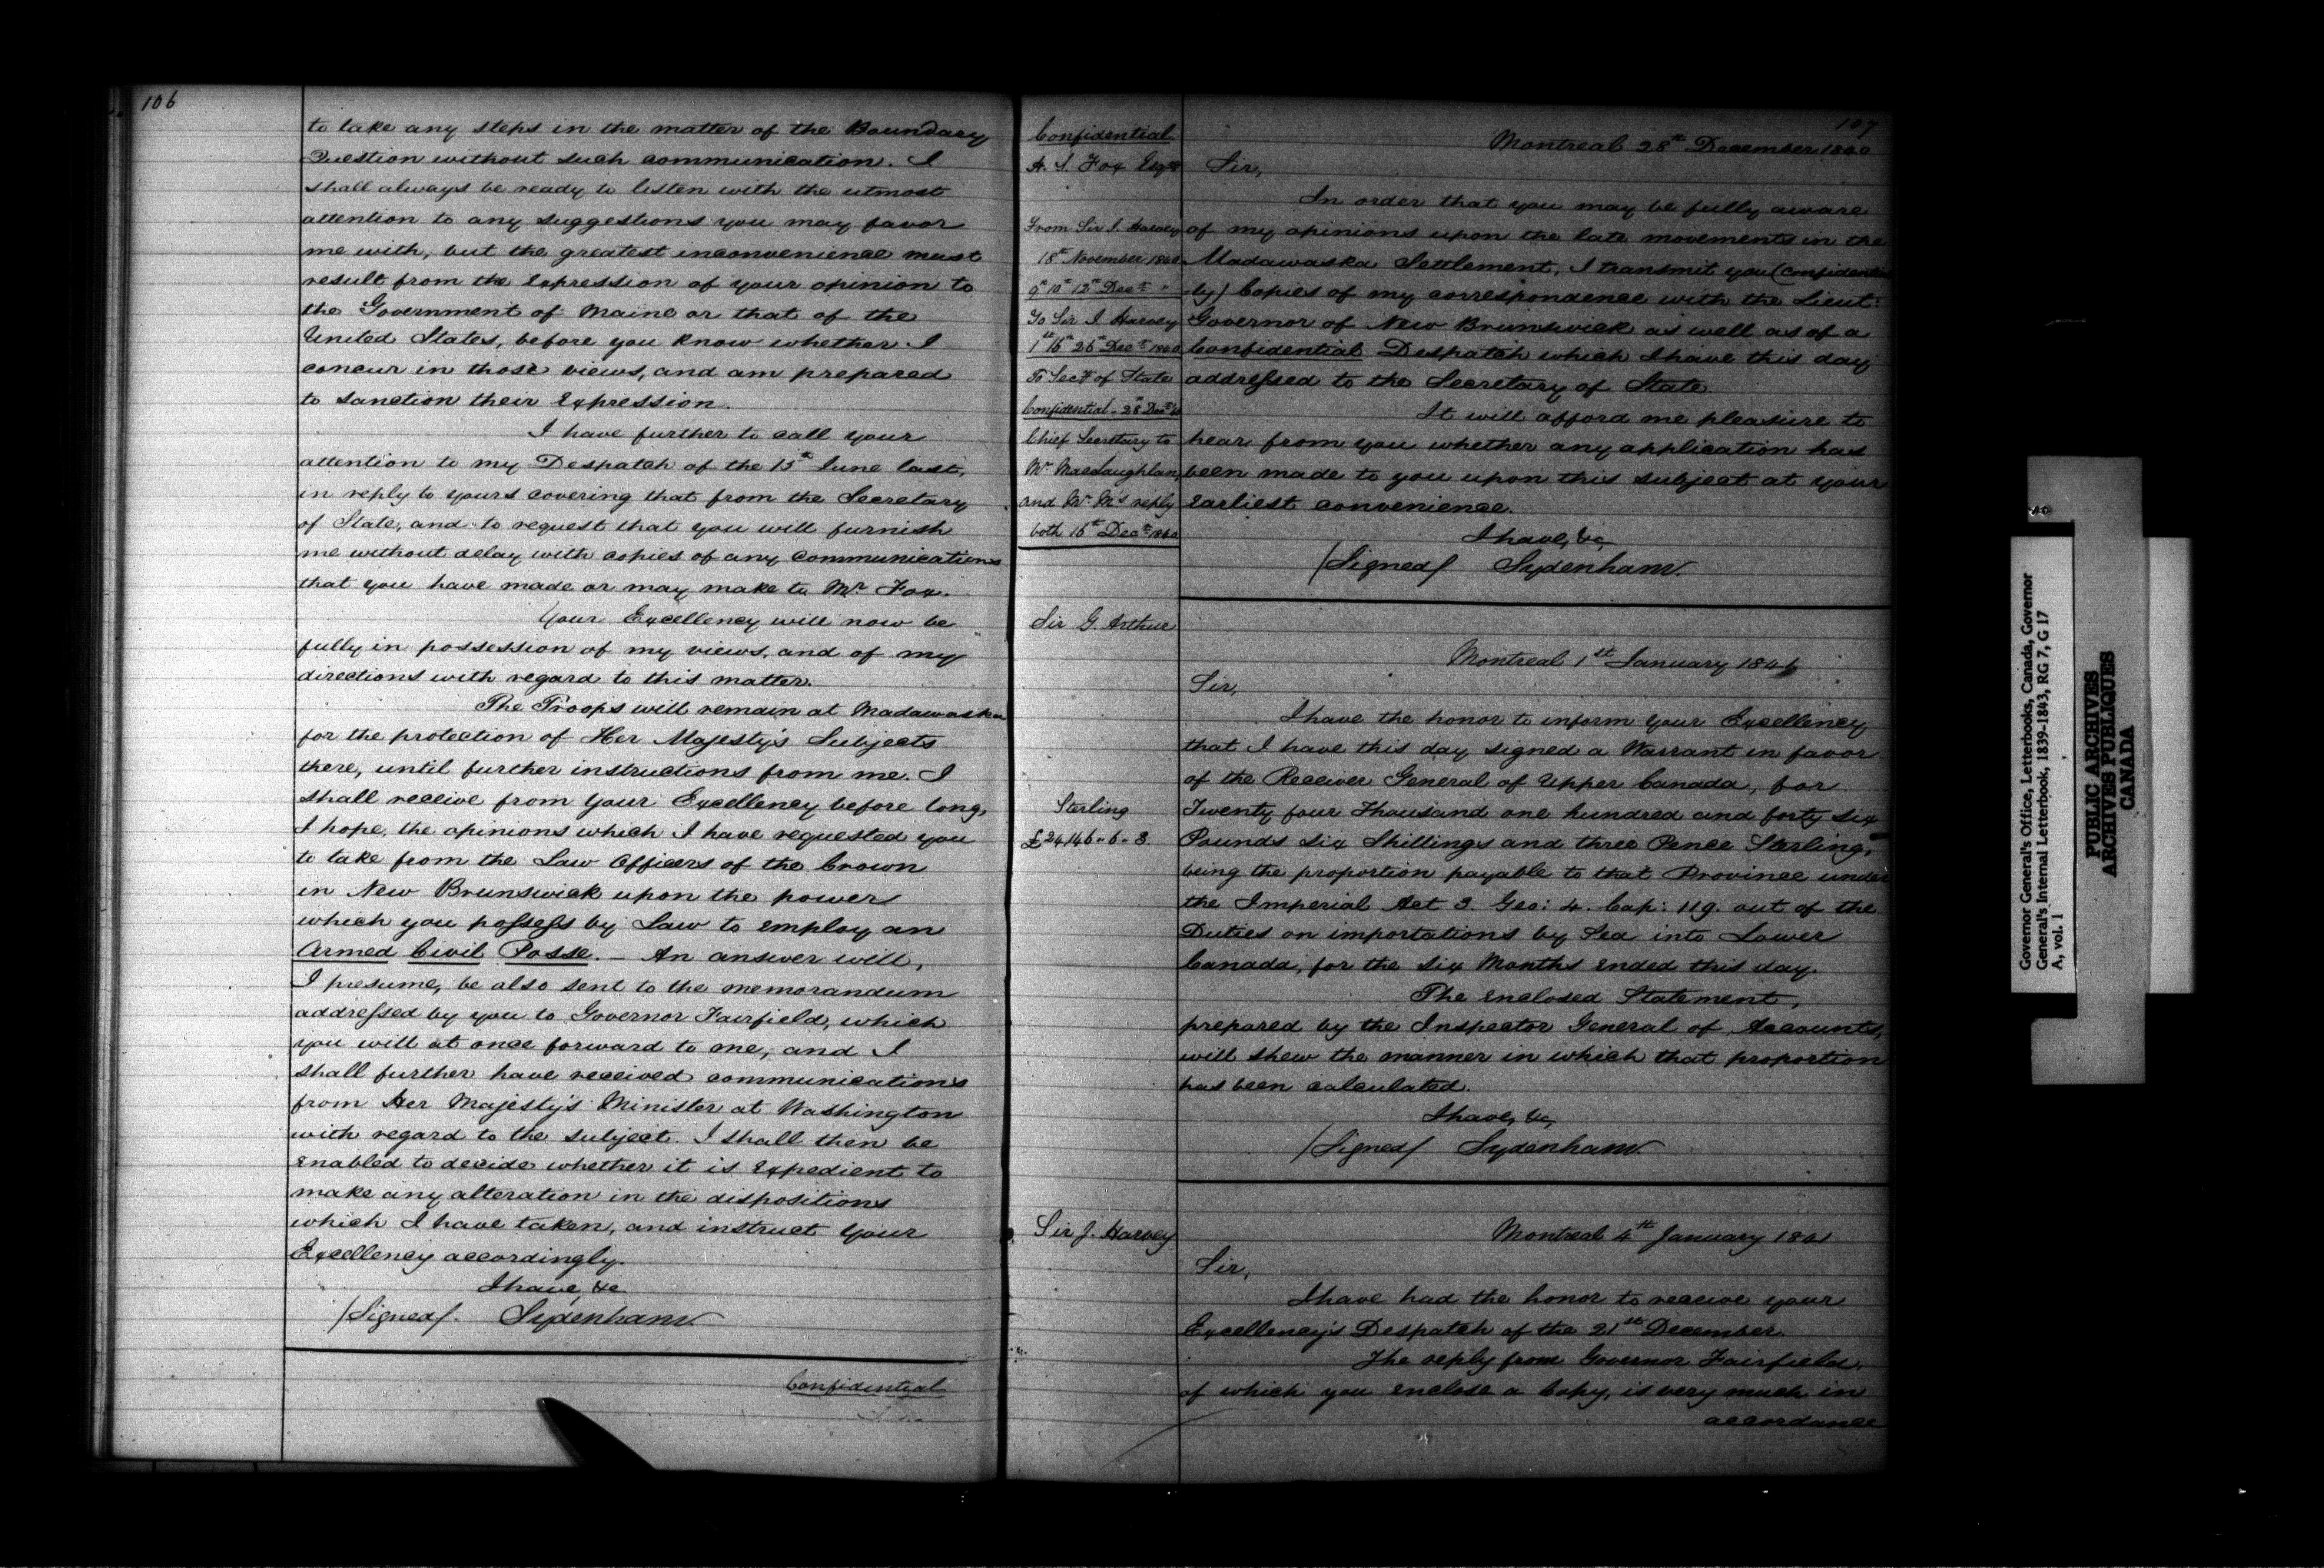 106
to take any steps in the matter of the Boundary
Question without such communication. I
shall always be ready to listen with the utmost
attention to any suggestions you may favor
me with, but the greatest inconvenience must
result from the expression of your opinion to
the Government of Maine or that of the
United States, before you know whether I
concur in those views, and am prepared
to sanction their expression.
I have further to call your
attention to my Despatch of the 15th June last,
in reply to yours covering that from the Secretary
of State, and to request that you will furnish
me without delay with copies of any communications
that you have made or may make to Mr Fox.
Your Excellency will now be
fully in possession of my views, and of my
directions with regard to this matter.
The Troops will remain at Madawaska
for the protection of Her Majesty's Subjects
there, until further instructions from me. I
shall receive from Your Excellency before long,
I hope, the opinions which I have requested you
to take from the Law Officers of the Crown
in New Brunswick upon the power
which you possess by Law to employ an
Armed Civil Posse. — An answer will,
I presume, be also sent to the memorandum
addressed by you to Governor Fairfield, which
you will at once forward to me, and I
shall further have received communications
from Her Majesty's Minister at Washington
with regard to the subject. I shall then be
enabled to decide whether it is expedient to
make any alteration in the dispositions
which I have taken, and instruct Your
Excellency accordingly.
I have, &c
/Signed/ Sydenham
Confidential
107
Confidential
H. S. Fox Esqre
From Sir J. Harvey
18th November 1840
9th 10th 12th Decr "
To Sir J. Harvey
1st 16th 26th Decr 1840
To Secy of State
Confidential - 28th Decr 40
Chief Secretary to
Mr Maclaughlan,
and Mr M's reply
both 16th Decr 1840
Montreal 28th December 1840
Sir,
In order that you may be fully aware
of my opinions upon the late movements in the
Madawaska Settlement, I transmit you (confidential
-ly) Copies of my correspondence with the Lieut:
Governor of New Brunswick as well as of a
Confidential Despatch which I have this day
addressed to the Secretary of State.
It will afford me pleasure to
hear from you whether any application has
been made to you upon this subject at your
earliest convenience.
I have, &c,
/Signed/ Sydenham
Sir G. Arthur
Montreal 1st January 1841
Sir,
I have the honor to inform Your Excellency
that I have this day signed a Warrant in favor
of the Receiver General of Upper Canada, for
Sterling
Twenty four Thousand one hundred and forty six
£24,146.. 6.. 3.
Pounds Six Shillings and three Pence Sterling,
being the proportion payable to that Province under
the Imperial Act 3. Geo: 4. Cap: 119. out of the
Duties on importations by Sea into Lower
Canada, for the six Months ended this day.
The enclosed Statement,
prepared by the Inspector General of Accounts,
will shew the manner in which that proportion
has been calculated.
I have, &c,
/Signed/ Sydenham
Sir J. Harvey
Montreal 4th January 1841
Sir,
I have had the honor to receive your
Excellency's Despatch of the 21st December.
The reply from Governor Fairfield,
of which you enclose a Copy, is very much in
accordance
Governor General's Office, Letterbooks, Canada, Governor
General's Internal Letterbook, 1839-1843, RG 7, G 17
A, vol. 1
PUBLIC ARCHIVES
ARCHIVES PUBLIQUES
CANADA